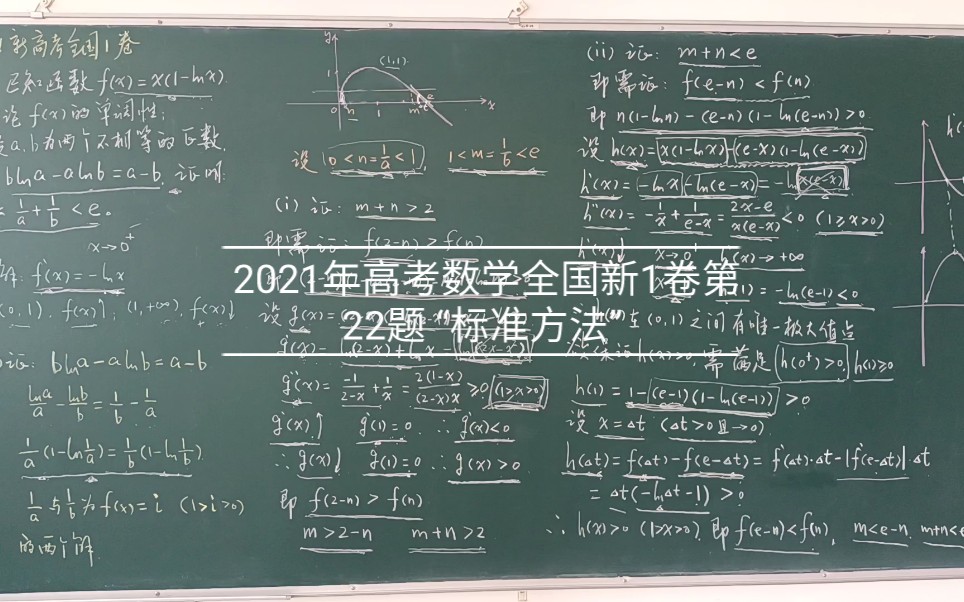 新高考全国1卷
已知函数 f(x)=x(1-lnx).
论 f(x) 的单调性;
a,b为两个不相等的正数,
blna-alnb=a-b, 证明:
1/a+1/b<e。
x→0⁺
f'(x)=-lnx
(0,1), f(x)↑; (1,+∞), f(x)↓
证: blna-alnb=a-b
lna/a-lnb/b=1/b-1/a
1/a(1-ln1/a)=1/b(1-ln1/b)
1/a与1/b为f(x)=i (1>i>0)
的两个解
y
(1,1)
1
0 n 1 m e x
设 0<n=1/a<1, 1<m=1/b<e
(i) 证: m+n>2
即需证: f(2-n)>f(n)
设 g(x)=
g'(x)=-ln(2-x)+lnx=-ln
g''(x)=-1/(2-x)+1/x=2(1-x)/((2-x)x)≥0 (1>x>0)
g'(x)↑ g'(1)=0 ∴ g'(x)<0
∴ g(x)↓ g(1)=0 ∴ g(x)>0
即 f(2-n)>f(n)
m>2-n m+n>2
(ii) 证: m+n<e
即需证: f(e-n)<f(n)
即 n(1-lnn)-(e-n)(1-ln(e-n))>0
设 h(x)=x(1-lnx)-(e-x)(1-ln(e-x))
h'(x)=-lnx-ln(e-x)=-ln[x(e-x)]
h''(x)=-1/x+1/(e-x)=(2x-e)/(x(e-x))<0 (1≥x>0)
h'(x)↓ x→0⁺ h'(x)→+∞
(1)=-ln(e-1)<0
在(0,1)之间有唯一极大值点
h(x)>0, 需满足 h(0⁺)>0, h(1)>0
h(1)=1-(e-1)(1-ln(e-1))>0
设 x=Δt (Δt>0且→0)
h(Δt)=f(Δt)-f(e-Δt)=f'(Δt)·Δt-|f'(e-Δt)|·Δt
=Δt(-lnΔt-1)>0
∴ h(x)>0 (1>x>0), 即 f(e-n)<f(n), m<e-n, m+n<e
2021年高考数学全国新1卷第
22题“标准方法”